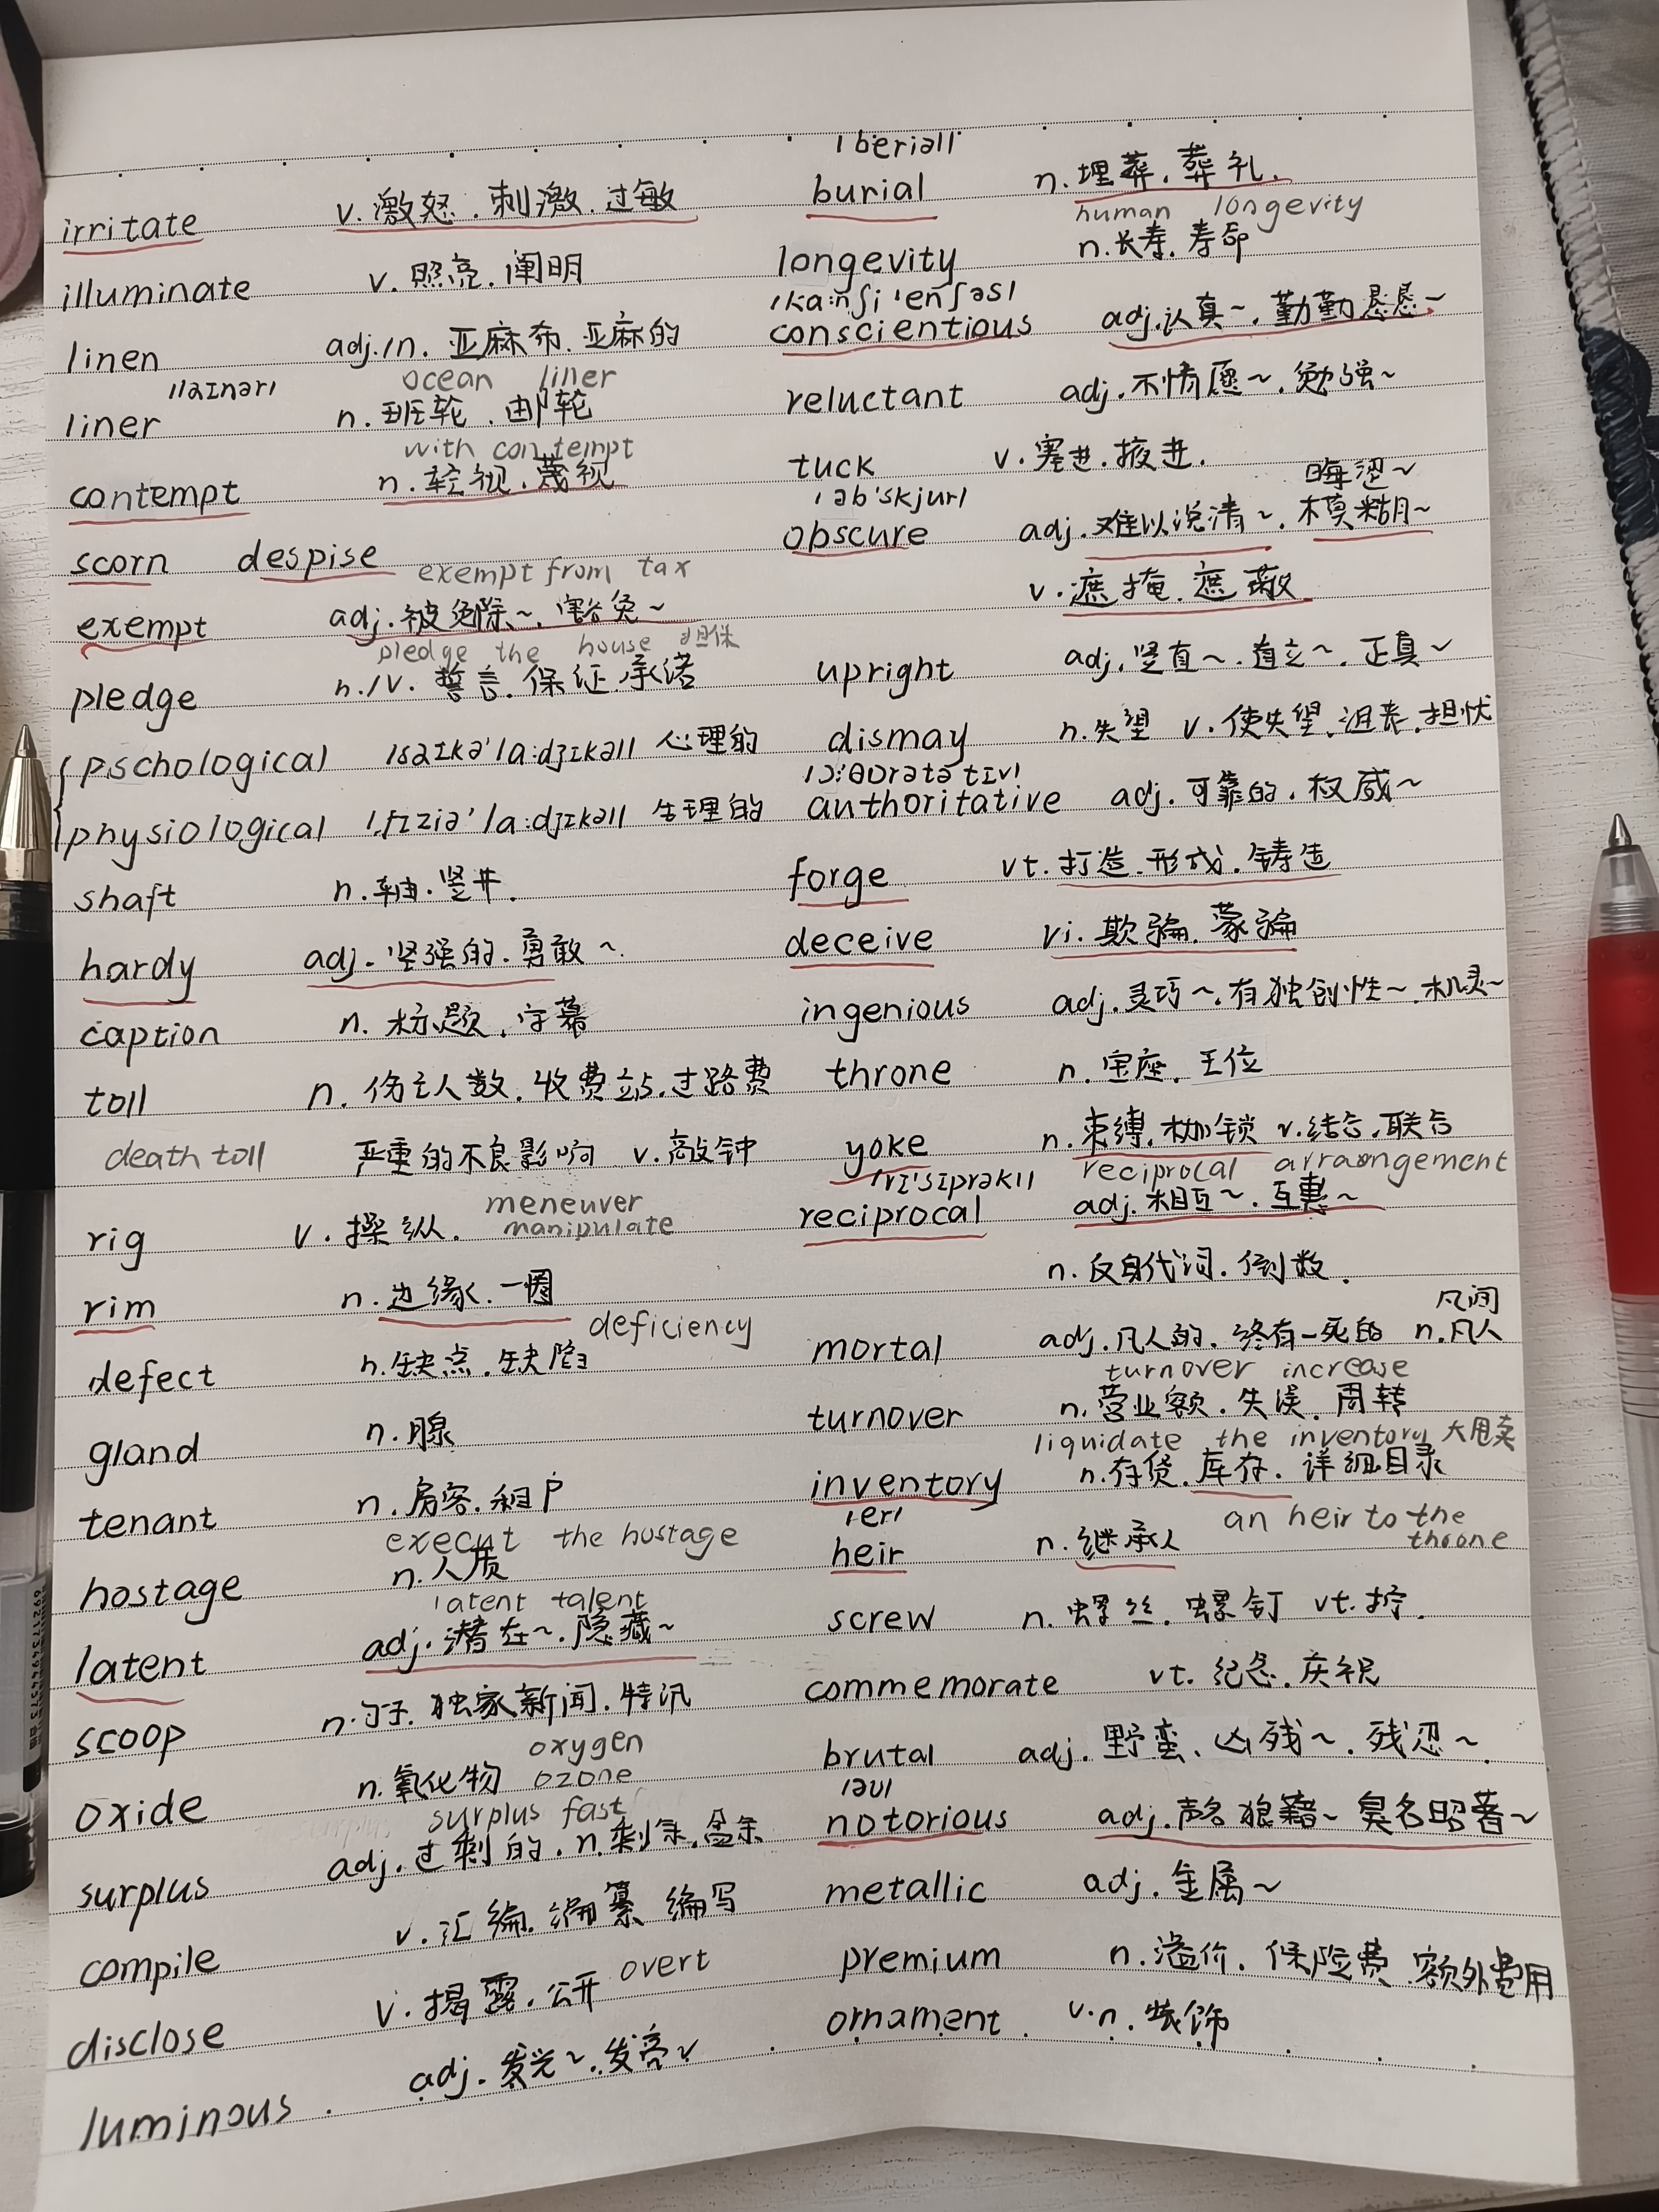 irritate v. 激怒. 刺激. 过敏
illuminate v. 照亮. 阐明
linen adj./n. 亚麻布. 亚麻的
/laɪnər/ ocean liner
liner n. 班轮. 邮轮
with contempt
contempt n. 轻视. 蔑视
scorn despise
exempt from tax
exempt adj. 被免除~. 豁免~
pledge the house 担保
pledge n./v. 誓言. 保证. 承诺
pschological /saɪkə'la:dʒɪkəl/ 心理的
physiological /ˌfɪziə'la:dʒɪkəl/ 生理的
shaft n. 轴. 竖井.
hardy adj. 坚强的. 勇敢~.
caption n. 标题. 字幕
toll n. 伤亡人数. 收费站. 过路费
death toll 严重的不良影响 v. 敲钟
meneuver
rig v. 操纵. manipulate
rim n. 边缘. 一圈
deficiency
defect n. 缺点. 缺陷
gland n. 腺
tenant n. 房客. 租户
execut the hostage
hostage n. 人质
latent talent
latent adj. 潜在~. 隐藏~
scoop n. 勺子. 独家新闻. 特讯
oxygen
oxide n. 氧化物 ozone
surplus fast
surplus adj. 过剩的. n. 剩余. 盈余
compile v. 汇编. 编纂 编写
disclose v. 揭露. 公开 overt
luminous adj. 发光~. 发亮~
/beriəl/
burial n. 埋葬. 葬礼.
human longevity
longevity n. 长寿. 寿命
/ˌka:nʃi'enʃəs/
conscientious adj. 认真~. 勤勤恳恳~
reluctant adj. 不情愿~. 勉强~
tuck v. 塞进. 掖进.
/əb'skjur/ 晦涩~
obscure adj. 难以说清~. 模糊~
v. 遮掩. 遮蔽
upright adj. 竖直~. 直立~. 正直~
dismay n. 失望 v. 使失望、沮丧. 担忧
/ɔ:θɒrətətɪv/
authoritative adj. 可靠的. 权威~
forge vt. 打造. 形成. 铸造
deceive vi. 欺骗. 蒙骗
ingenious adj. 灵巧~. 有独创性~. 机灵~
throne n. 宝座. 王位
yoke n. 束缚. 枷锁 v. 结合. 联合
/rɪ'sɪprəkl/ reciprocal arraongement
reciprocal adj. 相互~. 互惠~
n. 反身代词. 倒数.
凡间
mortal adj. 凡人的. 终有一死的 n. 凡人
turnover increase
turnover n. 营业额. 失误. 周转
liquidate the inventory 大甩卖
inventory n. 存货. 库存. 详细目录
/er/ an heir to the
heir n. 继承人 throne
screw n. 螺丝. 螺钉 vt. 拧.
commemorate vt. 纪念. 庆祝
brutal adj. 野蛮、凶残~. 残忍~.
/əu/
notorious adj. 声名狼籍~ 臭名昭著~
metallic adj. 金属~
premium n. 溢价. 保险费. 额外费用
ornament v. n. 装饰